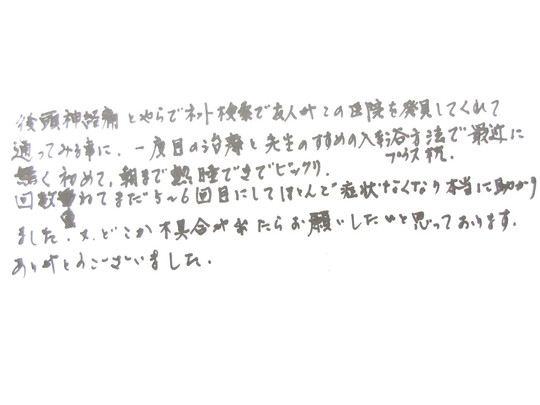 後頭神経痛とやらでネット検索で友人がこの医院を発見してくれて
通ってみる事に。一度目の治療と先生のすすめの入浴方法で最近に
プラス枕。
無く初めて、朝まで熟睡できてビックリ。
回数 わてまだ5〜6回目にしてほとんど症状なくなり本当に助かり
ました。又、どこか不具合が出たらお願いしたいと思っております。
ありがとうございました。